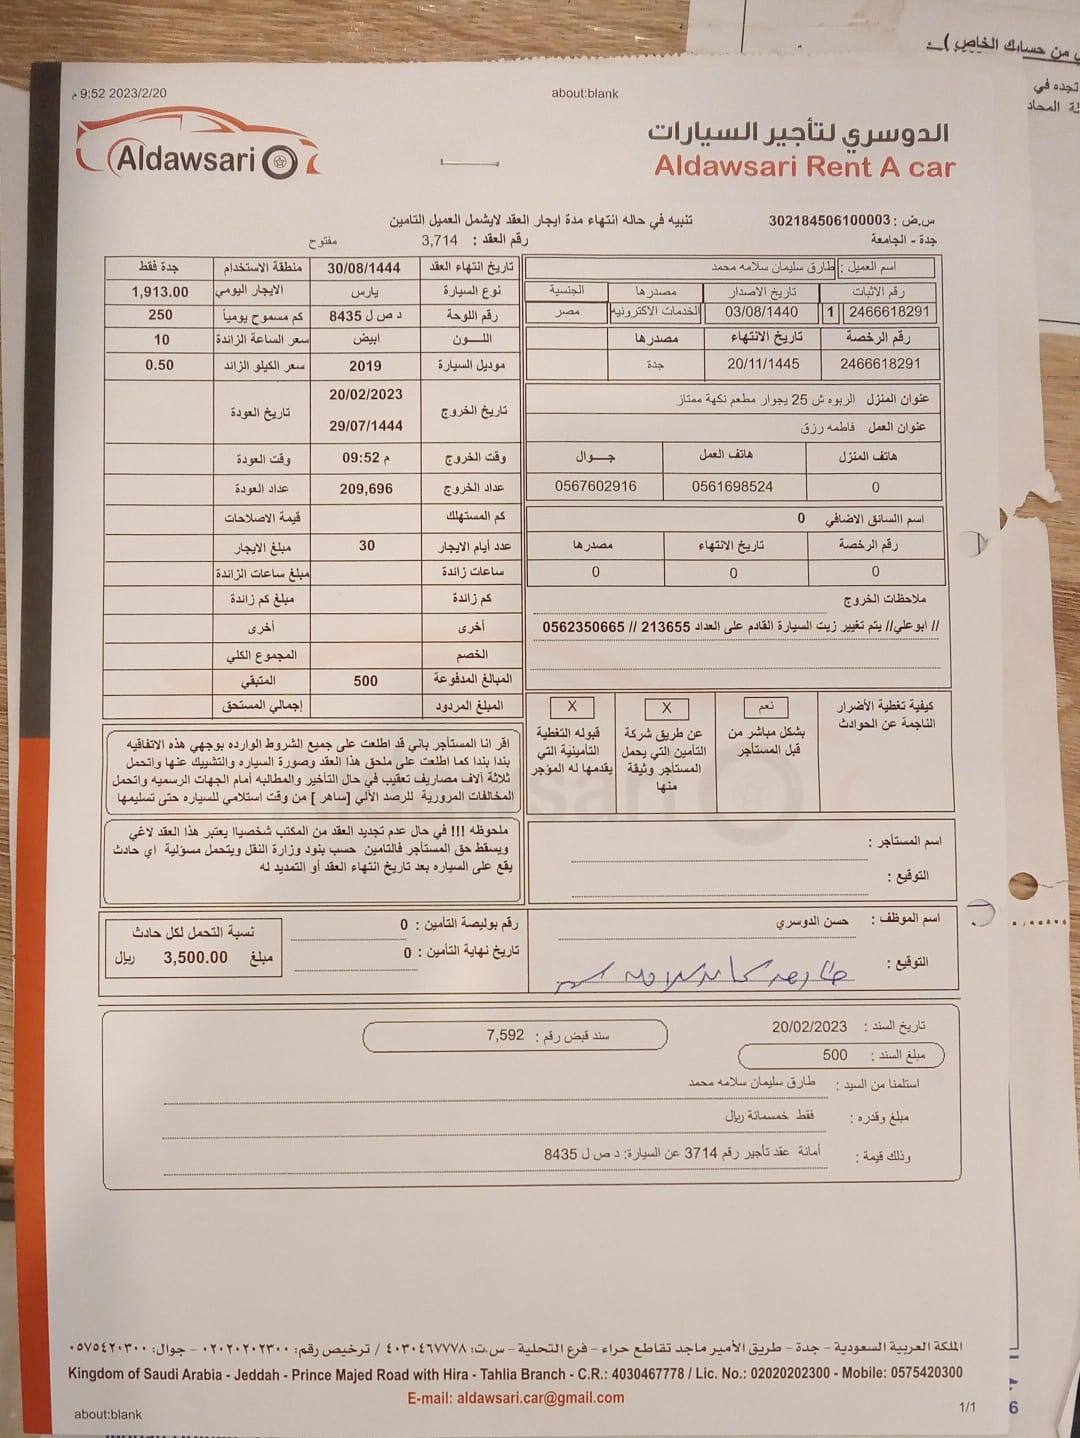 ى من حسابك الخاص ).
تجده في
9:52 2023/2/20 م
about:blank
Aldawsari
الدوسري لتأجير السيارات
Aldawsari Rent A car
س.ض : 302184506100003
تنبيه في حاله انتهاء مدة ايجار العقد لايشمل العميل التامين
جدة - الجامعة
رقم العقد : 3,714
مفتوح
اسم العميل : طارق سليمان سلامه محمد
رقم الاثبات تاريخ الاصدار مصدرها الجنسية
2466618291 1 03/08/1440 الخدمات الاكترونيه مصر
رقم الرخصة تاريخ الانتهاء مصدرها
2466618291 20/11/1445 جدة
عنوان المنزل الربوه ش 25 يجوار مطعم نكهة ممتاز
عنوان العمل فاطمه رزق
هاتف المنزل هاتف العمل جـــوال
0 0561698524 0567602916
اسم االسانق الاضافي 0
رقم الرخصة تاريخ الانتهاء مصدرها
0 0 0
ملاحظات الخروج
// ابوعلي// يتم تغيير زيت السيارة القادم على العداد 213655 // 0562350665
تاريخ انتهاء العقد 30/08/1444 منطقة الاستخدام جدة فقط
نوع السيارة يارس الايجار اليومي 1,913.00
رقم اللوحة د ص ل 8435 كم مسموح يومياً 250
اللـــون ابيض سعر الساعة الزائدة 10
موديل السيارة 2019 سعر الكيلو الزائد 0.50
تاريخ الخروج 20/02/2023 29/07/1444 تاريخ العودة
وقت الخروج 09:52 م وقت العودة
عداد الخروج 209,696 عداد العودة
كم المستهلك قيمة الاصلاحات
عدد أيام الايجار 30 مبلغ الايجار
ساعات زائدة مبلغ ساعات الزائدة
كم زائدة مبلغ كم زائدة
أخرى أخرى
الخصم المجموع الكلي
المبالغ المدفوعة 500 المتبقي
المبلغ المردود إجمالي المستحق
كيفية تغطية الأضرار الناجمة عن الحوادث
نعم
بشكل مباشر من قبل المستأجر
X
عن طريق شركة التأمين التي يحمل المستأجر وثيقة منها
X
قبوله التغطية التأمينية التي يقدمها له المؤجر
اقر انا المستأجر باني قد اطلعت على جميع الشروط الوارده بوجهي هذه الاتفاقيه
بندا بندا كما اطلعت على ملحق هذا العقد وصورة السياره والتشييك عنها واتحمل
ثلاثة آلاف مصاريف تعقيب في حال التأخير والمطالبه أمام الجهات الرسميه واتحمل
المخالفات المرورية للرصد الألي [ساهر ] من وقت استلامي للسياره حتى تسليمها
ملحوظه !!! في حال عدم تجديد العقد من المكتب شخصياا يعتبر هذا العقد لاغي
ويسقط حق المستأجر فالتامين حسب بنود وزارة النقل ويتحمل مسؤلية اي حادث
يقع على السياره بعد تاريخ انتهاء العقد أو التمديد له
اسم المستأجر :
التوقيع :
اسم الموظف : حسن الدوسري
التوقيع :
رقم بوليصة التأمين : 0
تاريخ نهاية التأمين : 0
نسبة التحمل لكل حادث
مبلغ 3,500.00 ريال
تاريخ السند : 20/02/2023
سند قبض رقم : 7,592
مبلغ السند : 500
استلمنا من السيد : طارق سليمان سلامه محمد
مبلغ وقدره : فقط خمسمائة ريال
وذلك قيمة : أمانة عقد تأجير رقم 3714 عن السيارة: د ص ل 8435
المملكة العربية السعودية - جدة - طريق الأمير ماجد تقاطع حراء - فرع التحلية - س.ت: ٤٠٣٠٤٦٧٧٧٨ / ترخيص رقم: ٠٢٠٢٠٢٠٢٣٠٠ - جوال: ٠٥٧٥٤٢٠٣٠٠
Kingdom of Saudi Arabia - Jeddah - Prince Majed Road with Hira - Tahlia Branch - C.R.: 4030467778 / Lic. No.: 02020202300 - Mobile: 0575420300
E-mail: aldawsari.car@gmail.com
about:blank
1/1